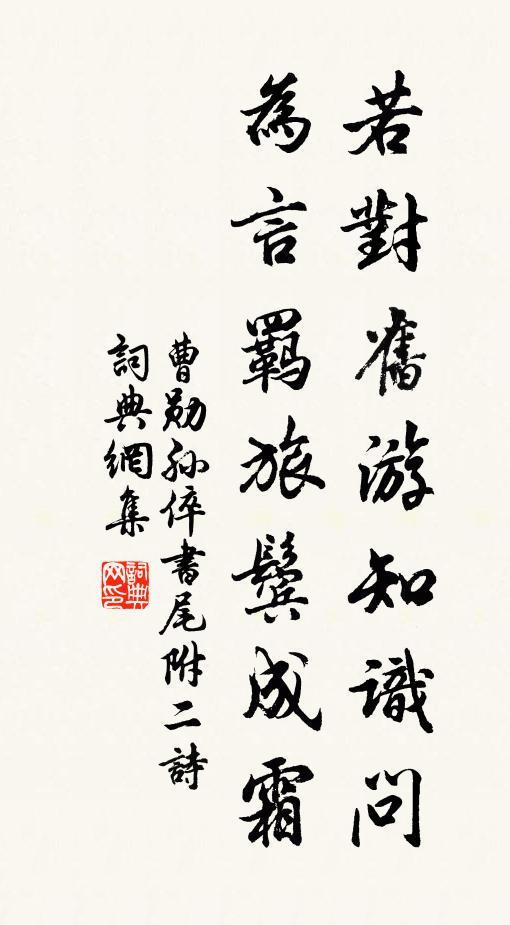 若對舊游知識問
為言羈旅鬢成霜
曹勛孫倅書尾附二詩
詞典網集
詞典网印